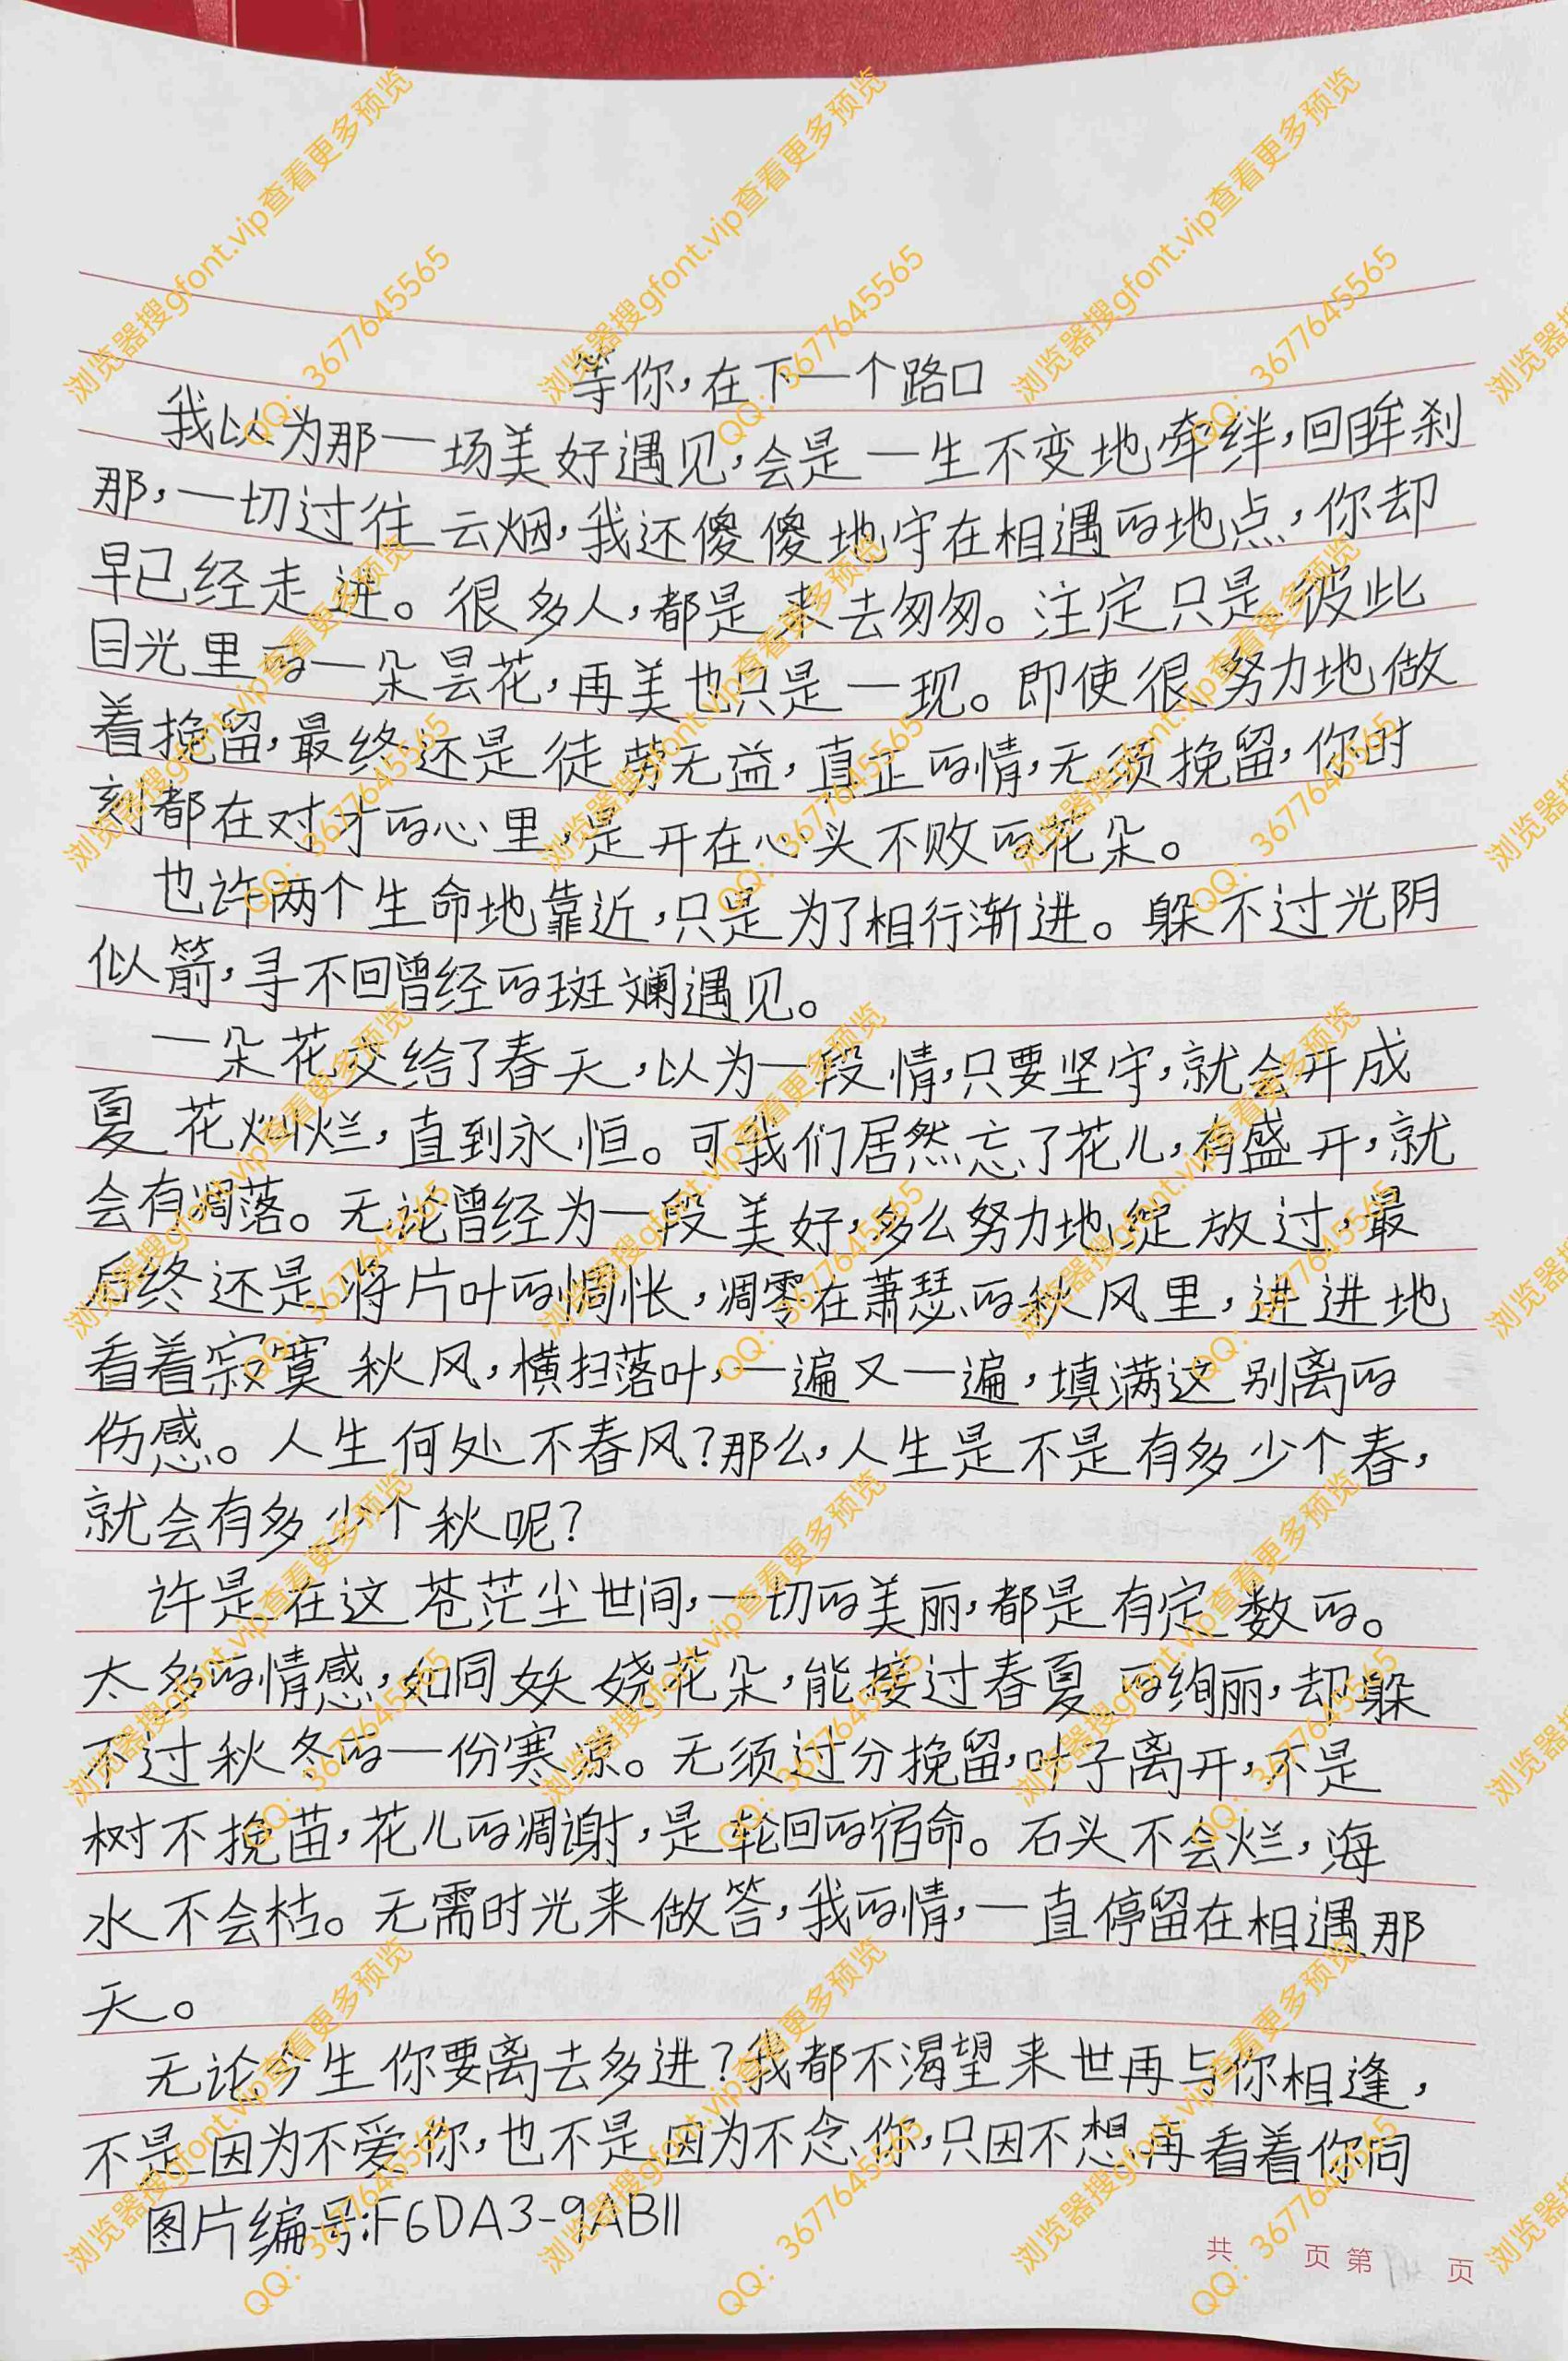 等你,在下一个路口
我以为那一场美好遇见,会是一生不变地牵绊,回眸刹
那,一切过往云烟,我还傻傻地守在相遇的地点,你却
早已经走进。很多人,都是来去匆匆。注定只是彼此
目光里的一朵昙花,再美也只是一现。即使很努力地做
着挽留,最终还是徒劳无益,直正的情,无须挽留,你时
刻都在对才的心里,是开在心头不败的花朵。
也许两个生命地靠近,只是为了相行渐进。躲不过光阴
似箭,寻不回曾经的斑斓遇见。
一朵花交给了春天,以为一段情,只要坚守,就会开成
夏花灿烂,直到永恒。可我们居然忘了花儿,有盛开,就
会有凋落。无论曾经为一段美好,多么努力地绽放过,最
后终还是将片叶的惆怅,凋零在萧瑟的秋风里,进进地
看着寂寞秋风,横扫落叶,一遍又一遍,填满这别离的
伤感。人生何处不春风?那么,人生是不是有多少个春,
就会有多少个秋呢?
许是在这苍茫尘世间,一切的美丽,都是有定数的。
太多的情感,如同妖娆花朵,能接过春夏的绚丽,却躲
不过秋冬的一份寒凉。无须过分挽留,叶子离开,不是
树不挽苗,花儿的凋谢,是轮回的宿命。石头不会烂,海
水不会枯。无需时光来做答,我的情,一直停留在相遇那
天。
无论今生你要离去多进?我都不渴望来世再与你相逢,
不是因为不爱你,也不是因为不念你,只因不想再看着你同
图片编号:F6DA3-9AB11
共 页第 页
浏览器搜gfont.vip查看更多预览
QQ: 3677645565